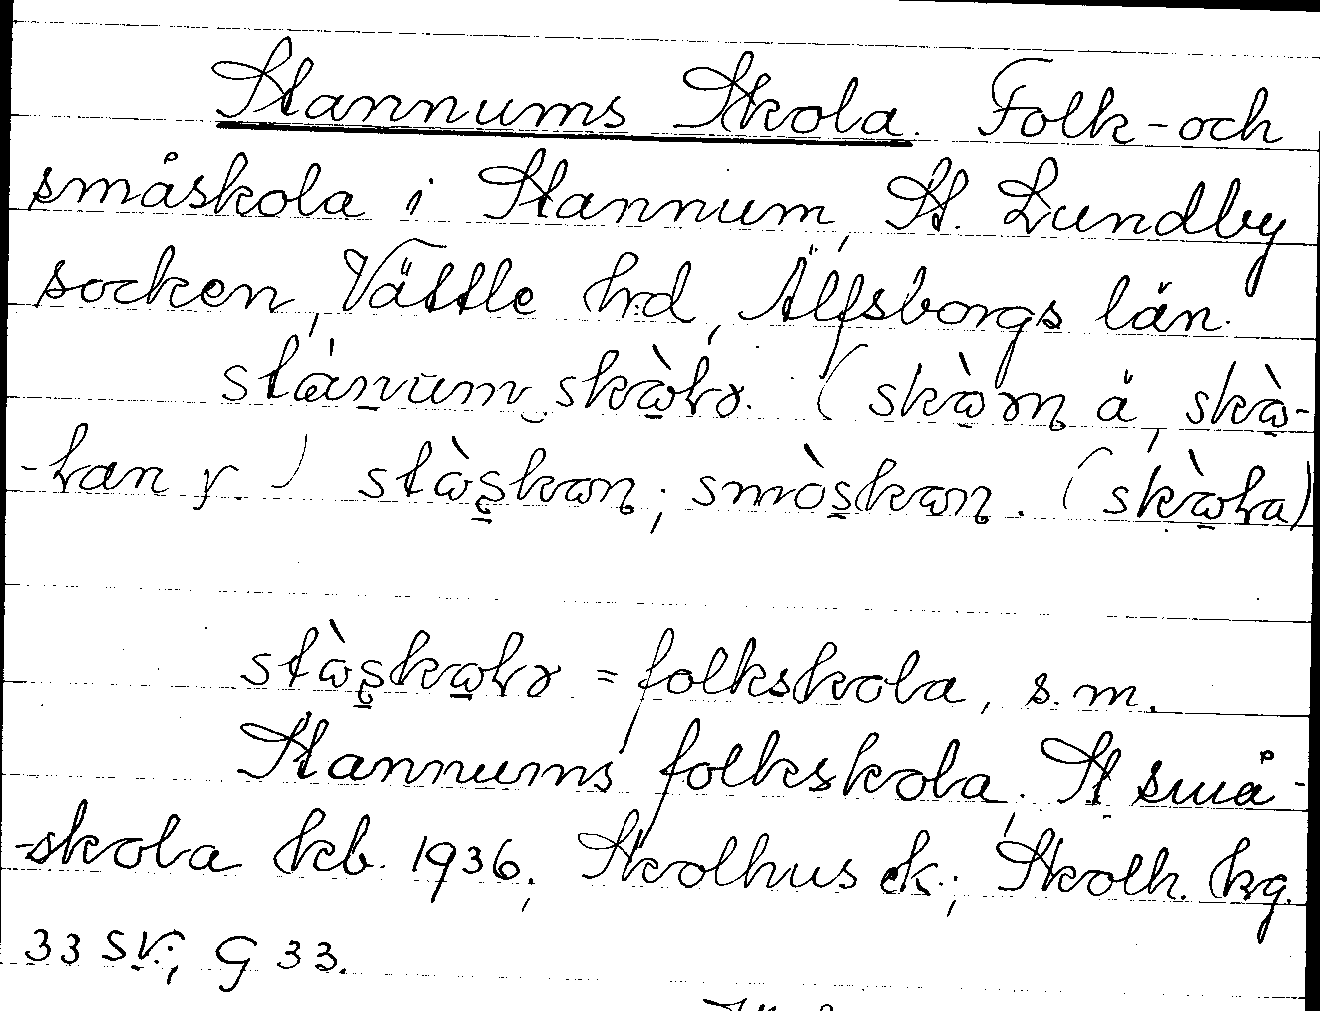 Stannums Skola. Folk- och
småskola i Stannum, St. Lundby
socken, Vättle hd, Älfsborgs län.
stànum skàlɤ. (skàɷn ä, skàɷ-
-lan y.) stàɷskɷn; smòskɷn. (skàɷla)
stàɷskɷlɤ = folkskola, s.m.
Stannums folkskola, St små-
-skola kb. 1936; Skolhus ek; Skolh. kg.
33 SV; G 33.